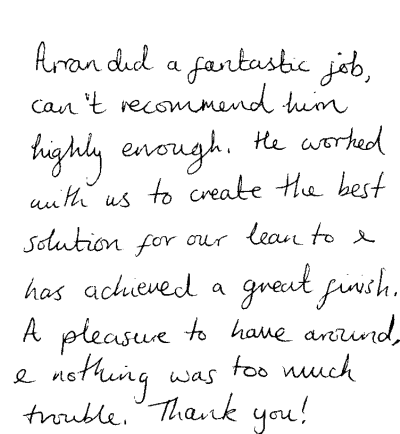 Arran did a fantastic job,
can't recommend him
highly enough. He worked
with us to create the best
solution for our lean to &
has achieved a great finish.
A pleasure to have around,
& nothing was too much
trouble. Thank you!